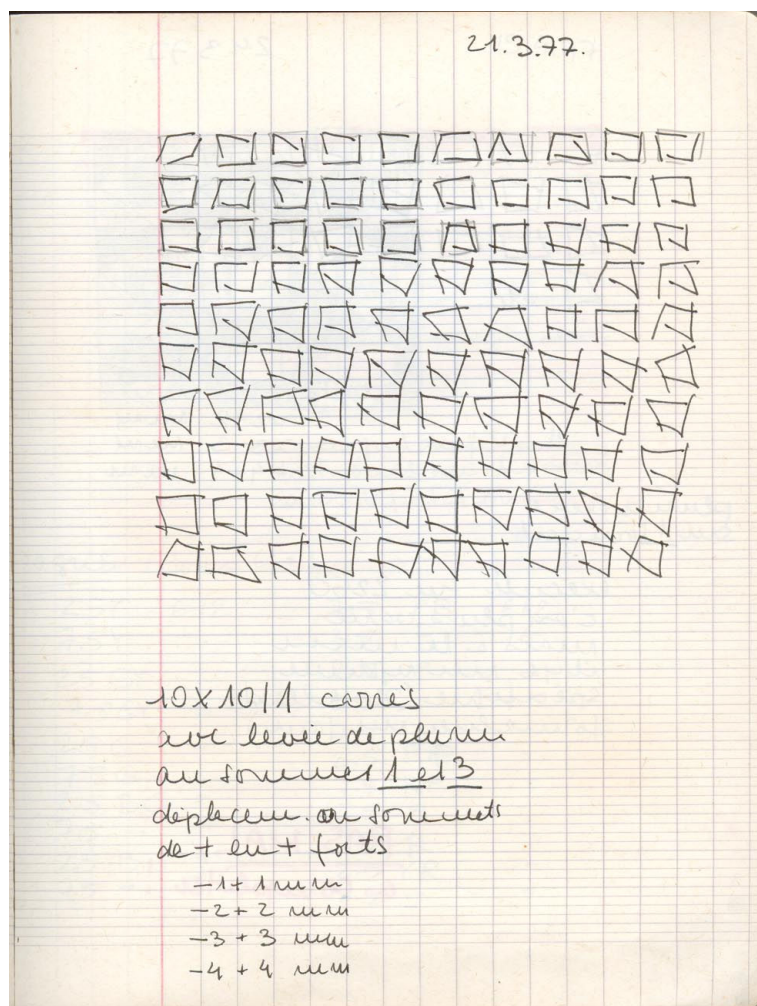 21.3.77.
10x10/1 carrés
avc levée de plume
au sommet 1 et 3
déplacem. au sommets
de + en + forts
-1 + 1 mm
-2 + 2 mm
-3 + 3 mm
-4 + 4 mm